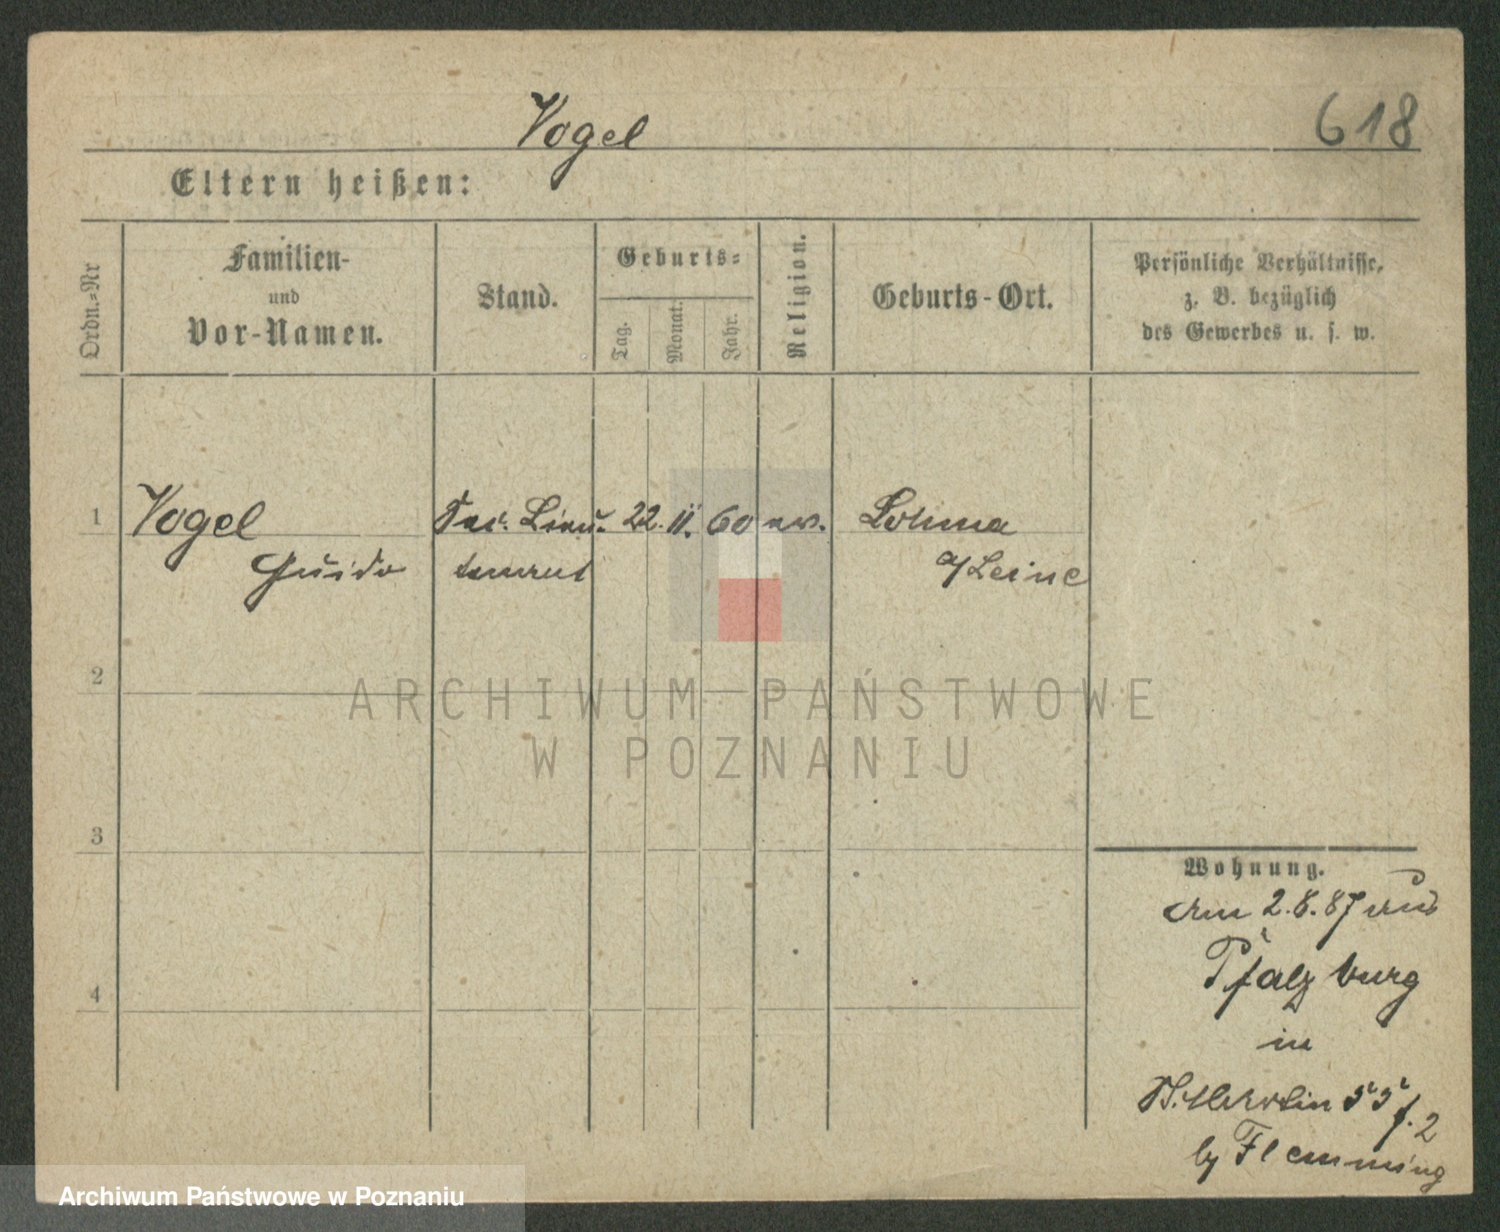 Vogel
618
Eltern heißen:
Ordn.=Nr
Familien-
und
Vor-Namen.
Stand.
Geburts=
Tag.
Monat.
Jahr.
Religion.
Geburts-Ort.
Persönliche Verhältnisse,
z. B. bezüglich
des Gewerbes u. s. w.
1
Vogel
Guido
Sec. Lieu-
tenant
22. II. 60 ev.
Lohma
a/Leine
2
ARCHIWUM PAŃSTWOWE
W POZNANIU
3
4
Wohnung.
am 2.8.87 aus
Pfalzburg
in
St. Martin 55 f. 2
by Flemming
Archiwum Państwowe w Poznaniu